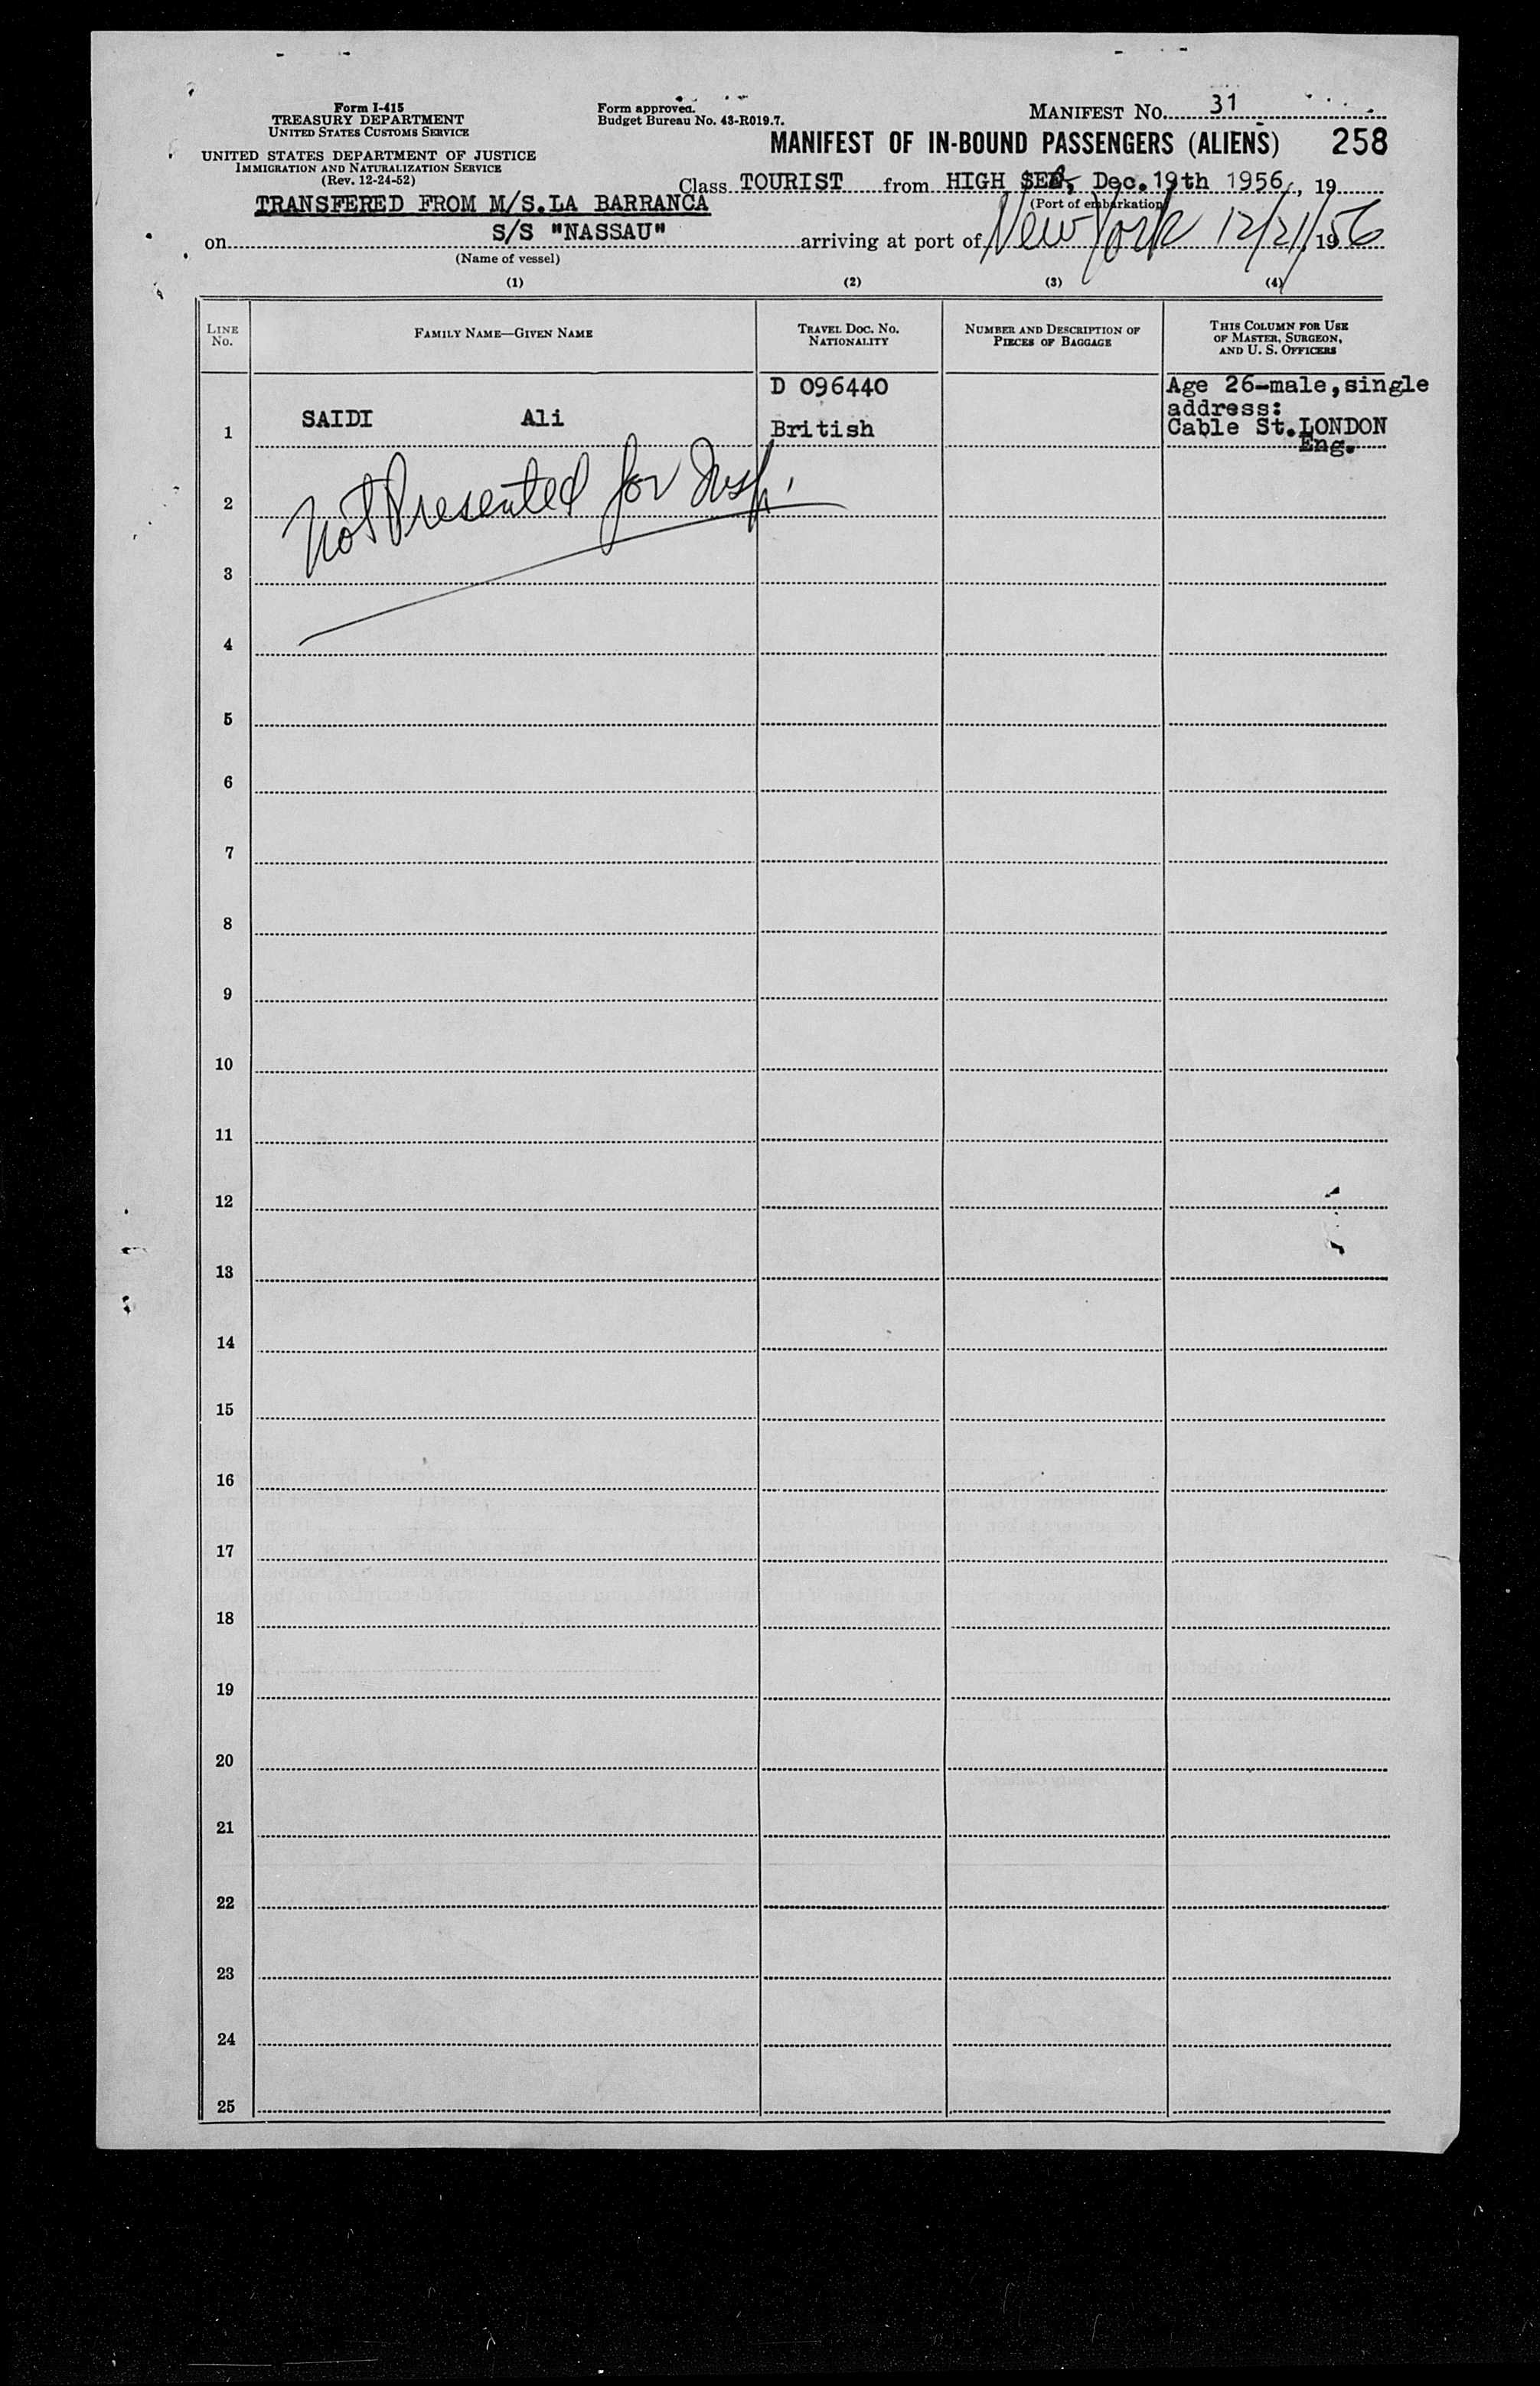 Form I-415
TREASURY DEPARTMENT
UNITED STATES CUSTOMS SERVICE
UNITED STATES DEPARTMENT OF JUSTICE
IMMIGRATION AND NATURALIZATION SERVICE
(Rev. 12-24-52)
Form approved.
Budget Bureau No. 43-R019.7.
MANIFEST NO. 31
MANIFEST OF IN-BOUND PASSENGERS (ALIENS) 258
Class TOURIST from HIGH Dec.19th 1956, 19
(Port of embarkation)
TRANSFERED FROM M/S.LA BARRANCA
on S/S "NASSAU" arriving at port of New York 12/21, 1956
(Name of vessel)
(1) (2) (3) (4)
LINE NO.
FAMILY NAME—GIVEN NAME
TRAVEL DOC. NO. NATIONALITY
NUMBER AND DESCRIPTION OF PIECES OF BAGGAGE
THIS COLUMN FOR USE OF MASTER, SURGEON, AND U. S. OFFICERS
1 SAIDI Ali
D 096440
British
Age 26-male,single
address:
Cable St.LONDON
Eng.
Not Presented for Insp.
2
3
4
5
6
7
8
9
10
11
12
13
14
15
16
17
18
19
20
21
22
23
24
25